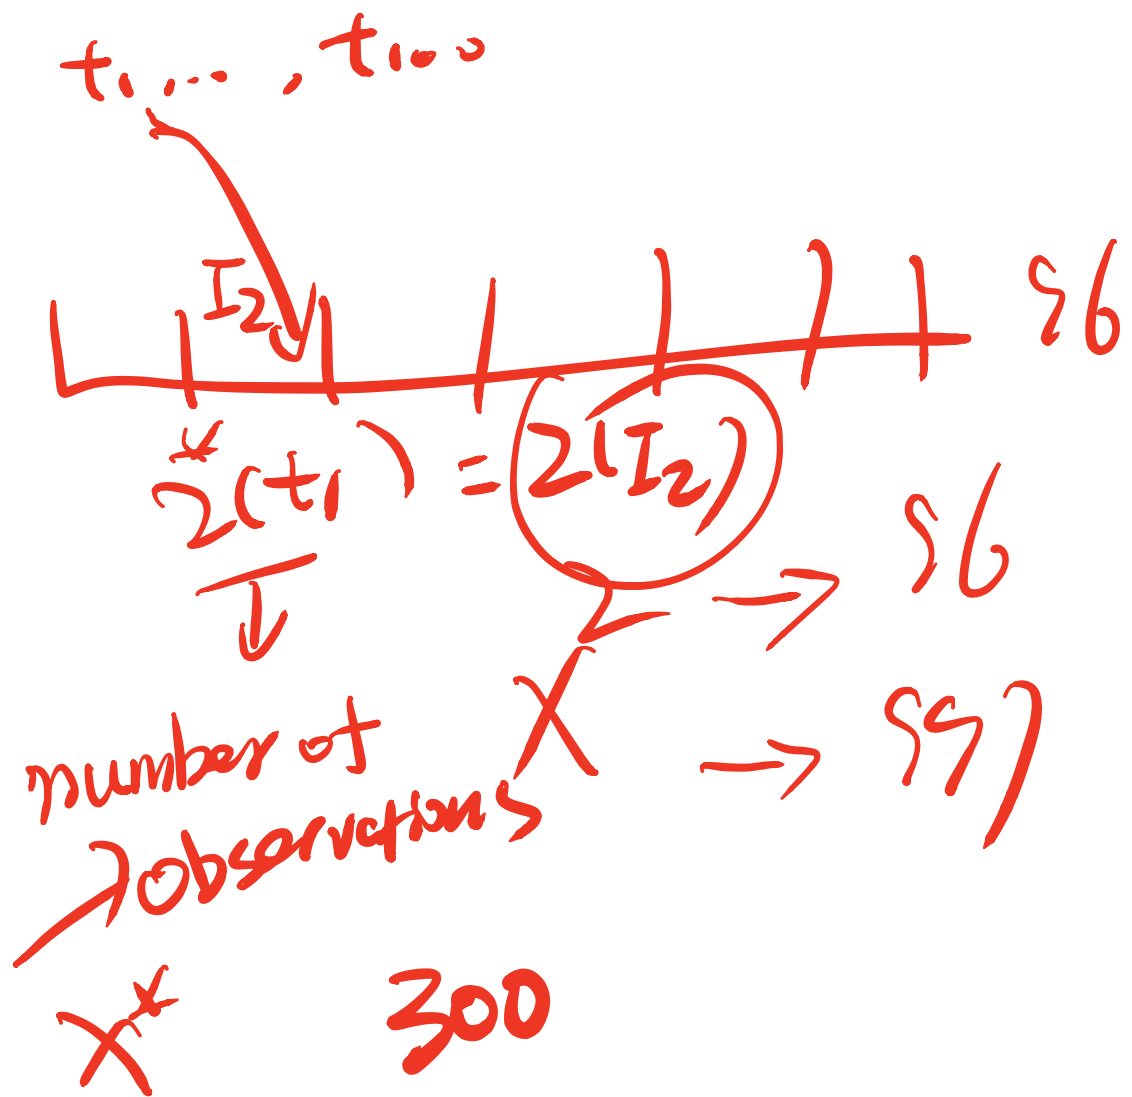 t₁, ..., t₁₀₀
I₂
96
z*(t₁) = z(I₂)
Z → 96
X → 997
number of
observations
X* 300